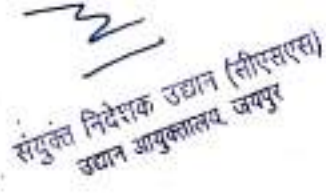 संयुक्त निदेशक उद्यान (सीएसएस)
उद्यान आयुक्तालय, जयपुर